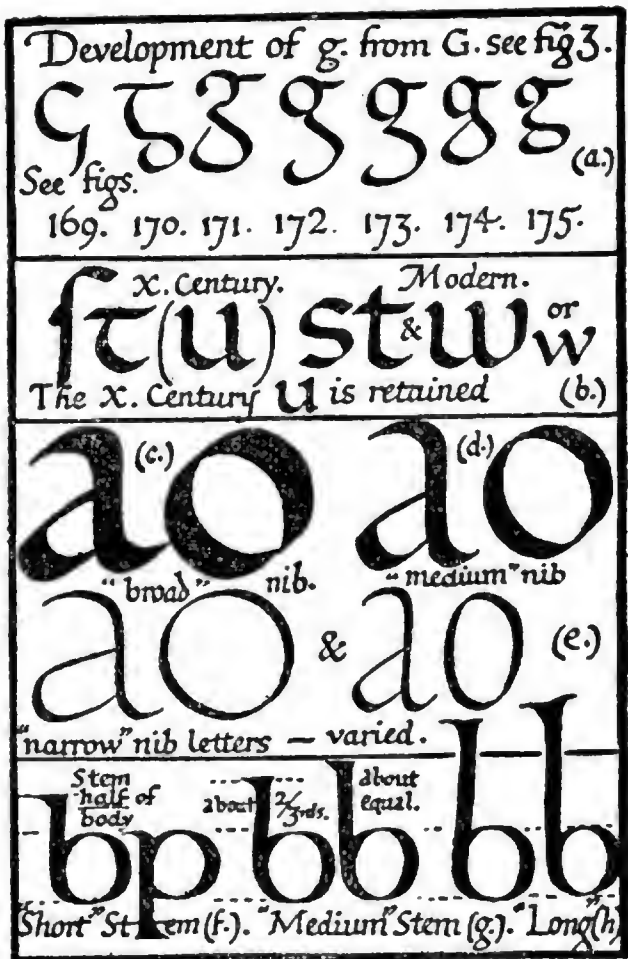 Development of g. from G. see fig 3.
G g g g g g g (a.)
See figs.
169. 170. 171. 172. 173. 174. 175.
X. Century. Modern.
ſt (u) st & w or w
The X. Century u is retained (b.)
a (c.) o a (d.) o
"broad" nib. "medium" nib
a o & a o (e.)
"narrow" nib letters — varied.
Stem half of body
about 2/3rds.
about equal.
b p b b b b
"Short" Stem (f.). "Medium" Stem (g.). "Long" (h)